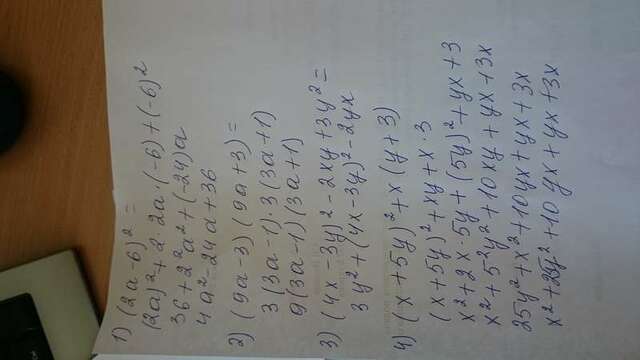 1) (2a - 6)² =
(2a)² + 2 · 2a · (-6) + (-6)²
36 + 2²a² + (-24)a
4a² - 24a + 36
2) (9a - 3) (9a + 3) =
3 (3a - 1) · 3 (3a + 1)
9 (3a - 1) (3a + 1)
3) (4x - 3y)² - 2xy + 3y² =
3y² + (4x - 3y)² - 2yx
4) (x + 5y)² + x (y + 3)
(x + 5y)² + xy + x · 3
x² + 2x · 5y + (5y)² + yx + 3
x² + 5²y² + 10xy + yx + 3x
25y² + x² + 10yx + yx + 3x
x² + 25y² + 10yx + yx + 3x